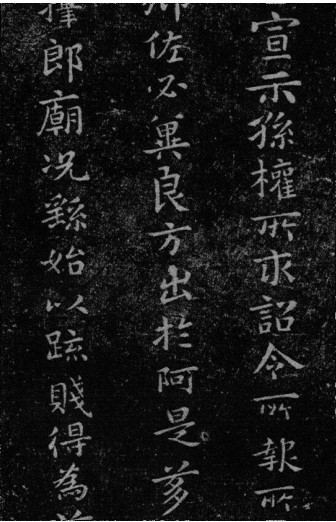 宣示孫權所求詔令所報所
卿佐必冀良方出於阿是芻
擇郎廟況繇始以疏賤得為